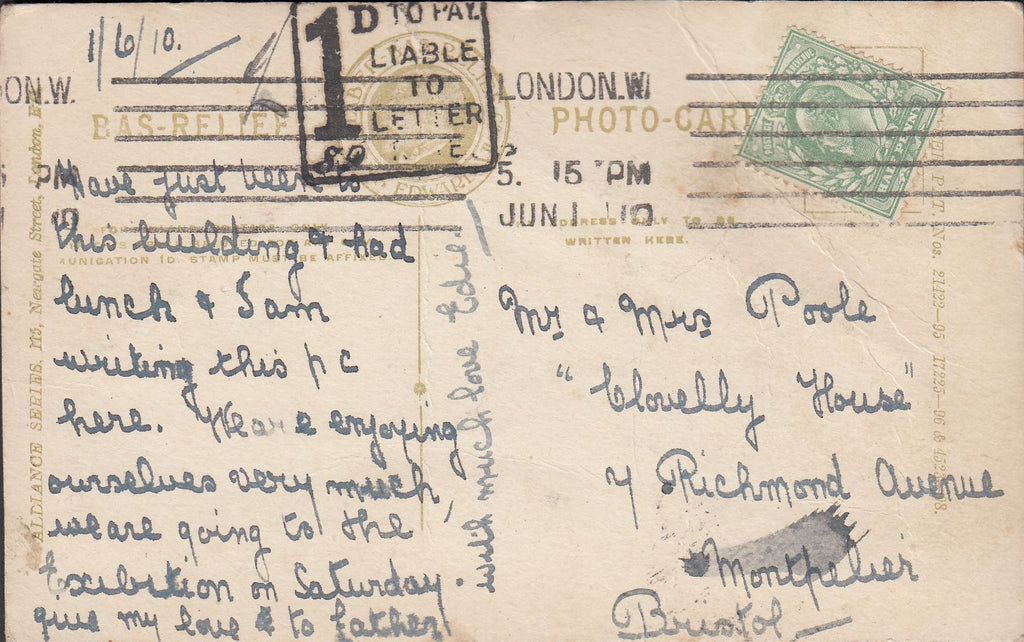 1/6/10.
1D TO PAY.
LIABLE
TO
LETTER
LONDON.W
5. 15 PM
JUN 1 10
ON.W.
PM
BAS-RELIEF
PHOTO-CARD
ADDRESS ONLY TO BE
WRITTEN HERE.
STAMP MUST BE AFFIXED
ALLIANCE SERIES, 115, Newgate Street, London, E.C.
Nos. 21123-95 17225-96 &
Have just been to
this building & had
lunch & I am
writing this p c
here. We are enjoying
ourselves very much,
we are going to the
Exibition on Saturday.
give my love & to father
with much love Edie.
Mr. & Mrs Poole
"Clovelly House"
7 Richmond Avenue
Montpelier
Bristol